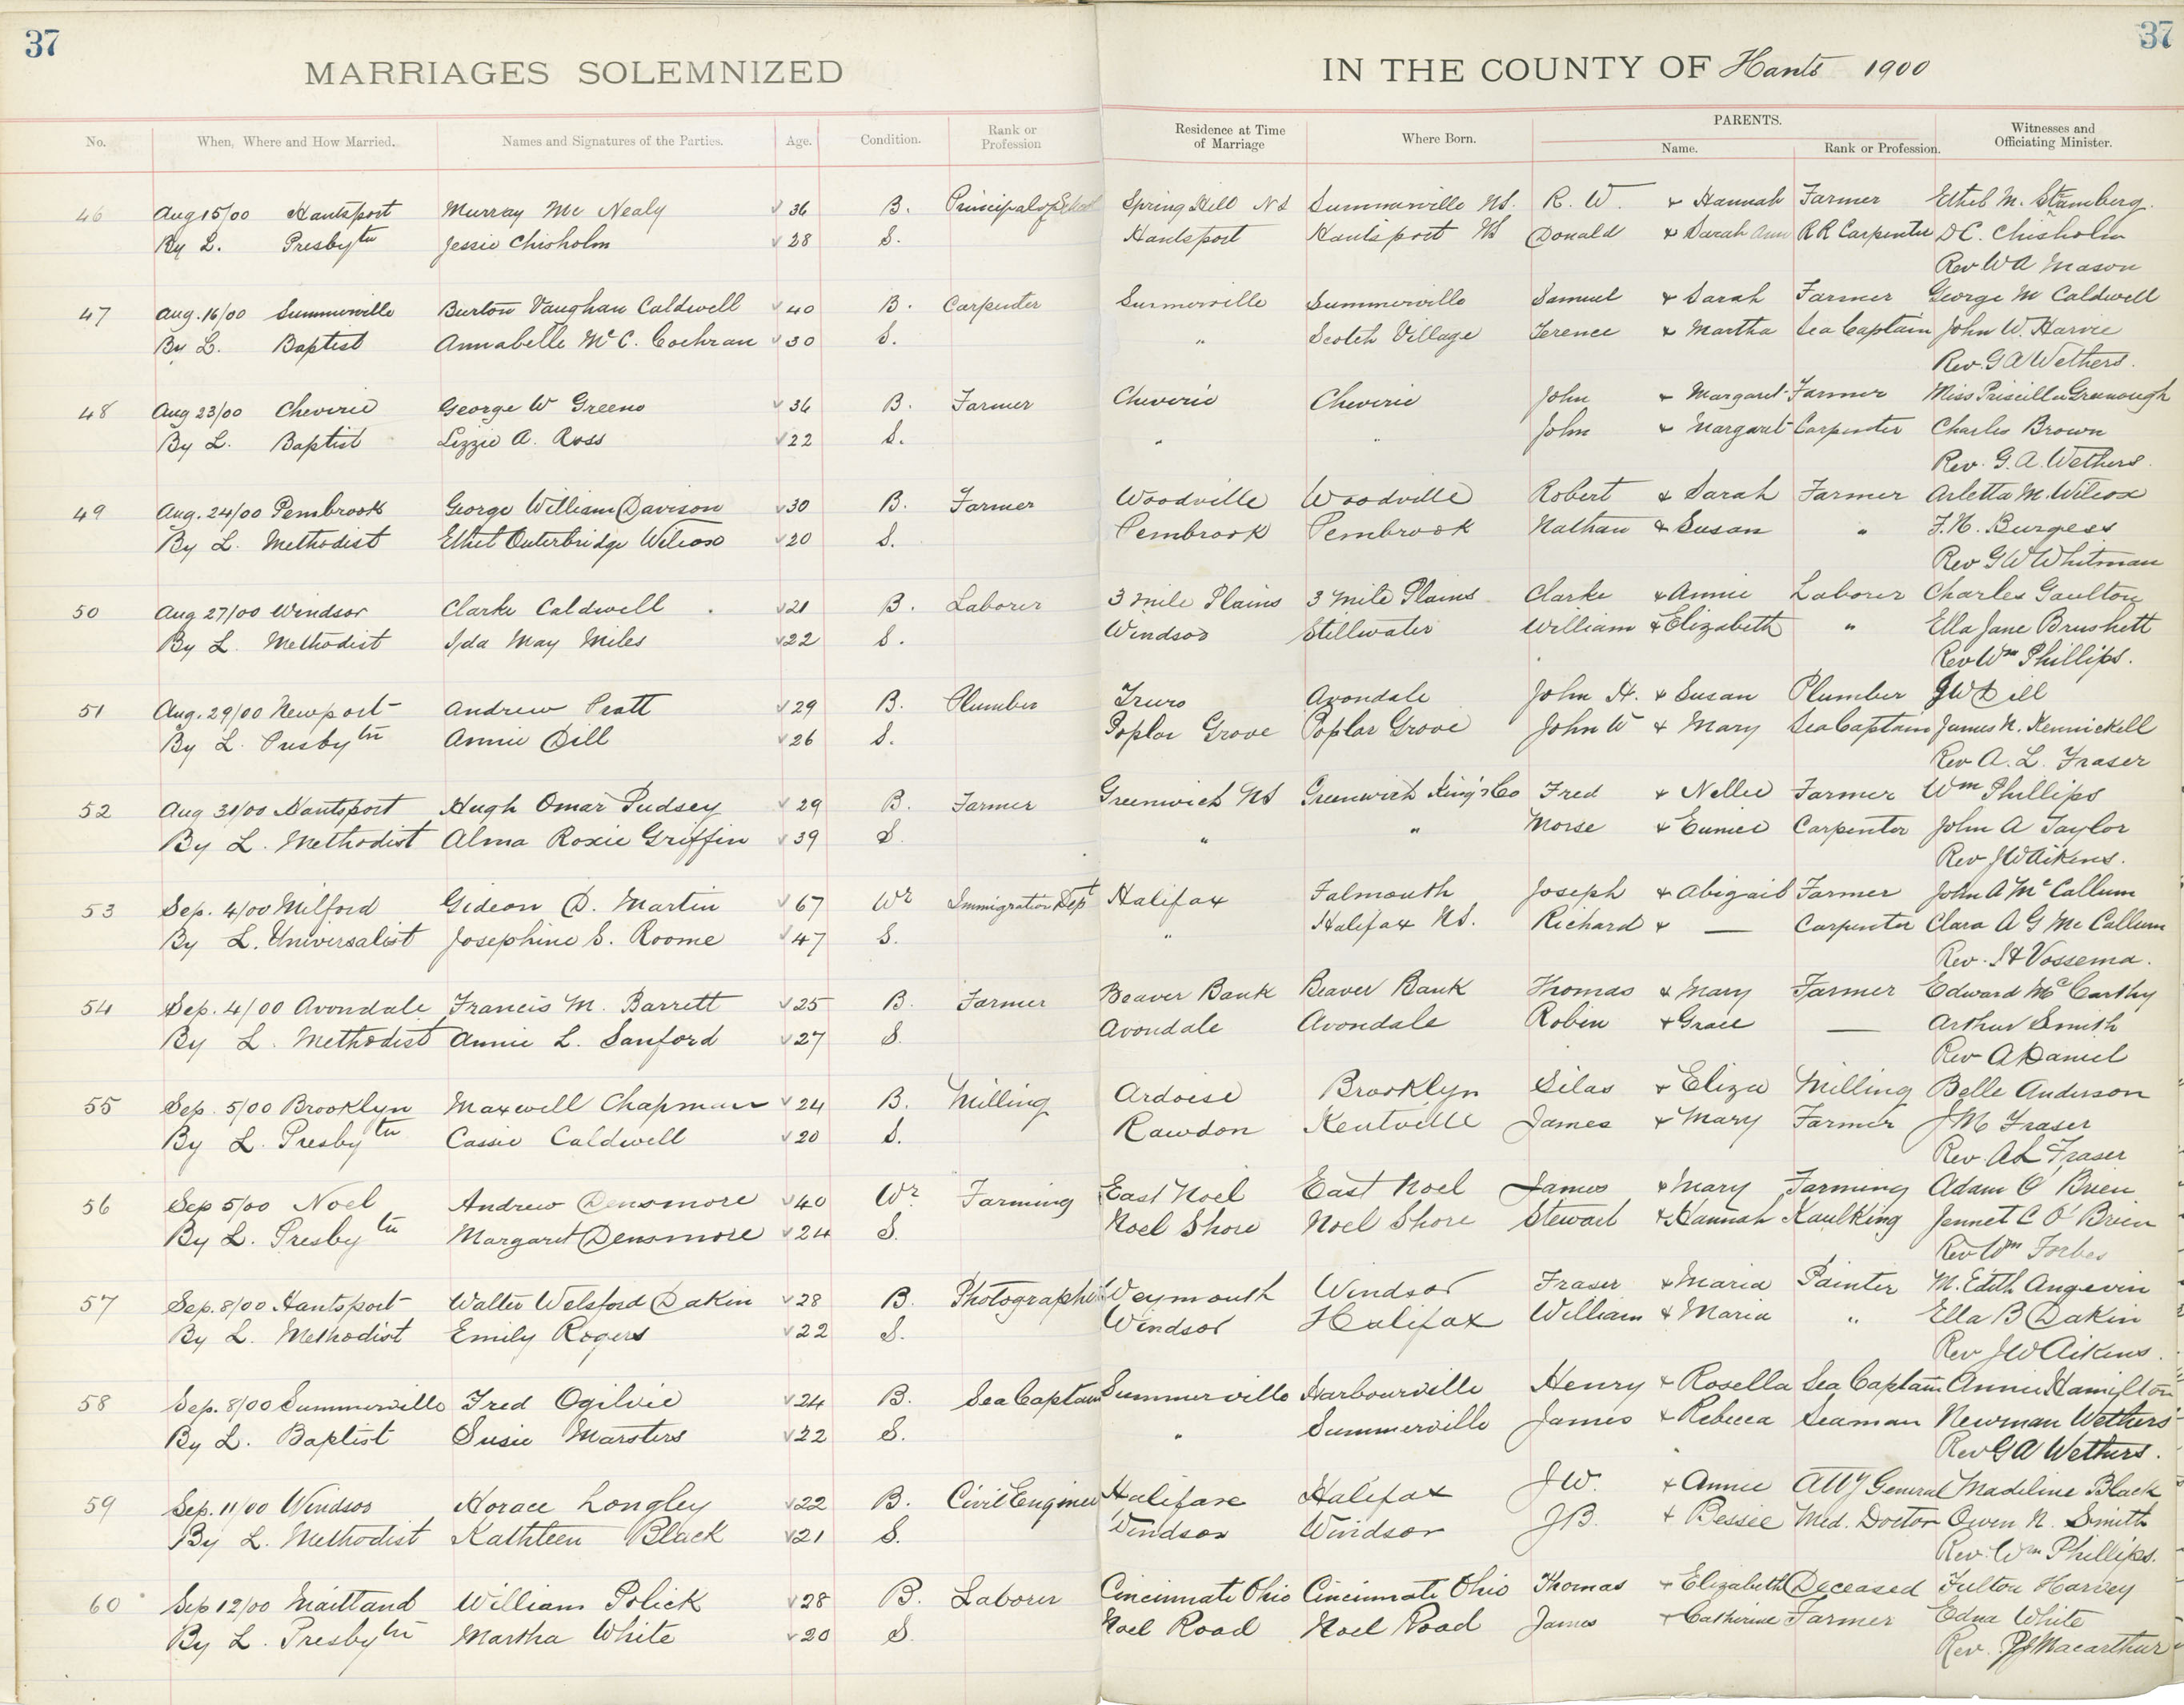 37
37
MARRIAGES SOLEMNIZED IN THE COUNTY OF Hants 1900
No. When, Where and How Married. Names and Signatures of the Parties. Age. Condition. Rank or Profession Residence at Time of Marriage Where Born. PARENTS. Name. Rank or Profession. Witnesses and Officiating Minister.
46 Aug 15/00 Hantsport Murray Mc Nealy 36 B. Principal of School Spring Hill NS Summerville NS. R. W. & Hannah Farmer Ethel M. Stamberg
By L. Presbytn Jessie Chisholm 28 S. Hantsport Hantsport NS Donald & Sarah Ann RR Carpenter D C. Chisholm
Rev W A Mason
47 Aug. 16/00 Summerville Burton Vaughan Caldwell 40 B. Carpenter Summerville Summerville Samuel & Sarah Farmer George M Caldwell
By L. Baptist Annabelle McC. Cochran 30 S. " Scotch Village Terence & Martha Sea Captain John W. Harvie
Rev. G A Wethers.
48 Aug 23/00 Cheverie George W Greeno 36 B. Farmer Cheverie Cheverie John & Margaret Farmer Miss Priscilla Greenough
By L. Baptist Lizzie A. Ross 22 S. " " John & Margaret Carpenter Charles Brown
Rev. G. A. Wethers.
49 Aug. 24/00 Pembrook George William Davison 30 B. Farmer Woodville Woodville Robert & Sarah Farmer Arletta M. Wilcox
By L. Methodist Ethel Outerbridge Wilcox 20 S. Pembrook Pembrook Nathan & Susan " F. H. Burgess
Rev G W Whitman
50 Aug 27/00 Windsor Clarke Caldwell 21 B. Laborer 3 mile Plains 3 mile Plains Clarke & Annie Laborer Charles Gaulton
By L. Methodist Ida May Miles 22 S. Windsor Stillwater William & Elizabeth " Ella Jane Brushett
Rev Wm Phillips.
51 Aug. 29/00 Newport Andrew Pratt 29 B. Plumber Truro Avondale John H. & Susan Plumber J W Dill
By L. Presbytn Annie Dill 26 S. Poplar Grove Poplar Grove John W & Mary Sea Captain James N. Kennickell
Rev A. L. Fraser
52 Aug 31/00 Hantsport Hugh Omar Pudsey 29 B. Farmer Greenwich NS Greenwich King's Co Fred & Nellie Farmer Wm Phillips
By L. Methodist Alma Roxie Griffin 39 S. " " Morse & Eunice Carpenter John A Taylor
Rev J W Aikens.
53 Sep. 4/00 Milford Gideon D. Martin 67 Wr Immigration Dept Halifax Falmouth Joseph & Abigail Farmer John A McCallum
By L. Universalist Josephine S. Roome 47 S. " Halifax NS. Richard & — Carpenter Clara A G McCallum
Rev. Vossema.
54 Sep. 4/00 Avondale Francis M. Barrett 25 B. Farmer Beaver Bank Beaver Bank Thomas & Mary Farmer Edward McCarthy
By L. Methodist Annie L. Sanford 27 S. Avondale Avondale Robin & Grace — Arthur Smith
Rev A Daniel
55 Sep. 5/00 Brooklyn Maxwell Chapman 24 B. Milling Ardoise Brooklyn Silas & Eliza Milling Belle Anderson
By L. Presbytn Cassie Caldwell 20 S. Rawdon Kentville James & Mary Farmer J M Fraser
Rev. A L Fraser
56 Sep 5/00 Noel Andrew Densmore 40 Wr. Farming East Noel East Noel James & Mary Farming Adam O'Brien
By L. Presbytn Margaret Densmore 24 S. Noel Shore Noel Shore Stewart & Hannah Kaulking Jennet C O'Brien
Rev Wm Forbes
57 Sep. 8/00 Hantsport Walter Welsford Dakin 28 B. Photographer Weymouth Windsor Fraser & Maria Painter M. Edith Angevin
By L. Methodist Emily Rogers 22 S. Windsor Halifax William & Maria " Ella B Dakin
Rev J W Aikens.
58 Sep. 8/00 Summerville Fred Ogilvie 24 B. Sea Captain Summerville Harbourville Henry & Rosella Sea Captain Annie Hamilton
By L. Baptist Susie Marsters 22 S. " Summerville James & Rebecca Seaman Newman Wethers
Rev G A Wethers.
59 Sep. 11/00 Windsor Horace Longley 22 B. Civil Engineer Halifax Halifax J W. & Annie Atty General Madeline Black
By L. Methodist Kathleen Black 21 S. Windsor Windsor J B. & Bessie Med. Doctor Owen N. Smith
Rev. Wm Phillips.
60 Sep 12/00 Maitland William Polick 28 B. Laborer Cincinnate Ohio Cincinnate Ohio Thomas & Elizabeth Deceased Fulton Harvey
By L. Presbytn Martha White 20 S. Noel Road Noel Road James & Catherine Farmer Edna White
Rev. Macarthur